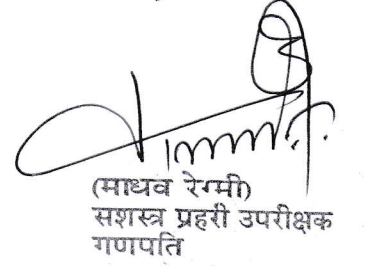 (माधव रेग्मी)
सशस्त्र प्रहरी उपरीक्षक
गणपति